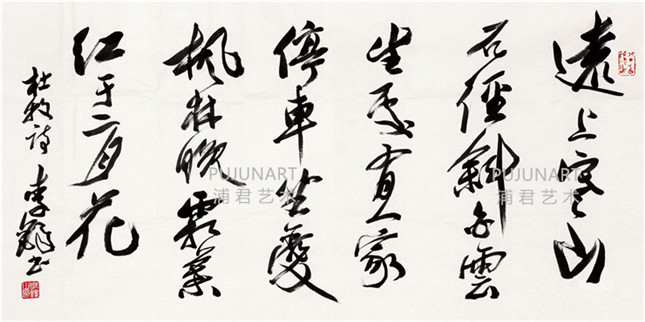 遠上寒山
石径斜白雲
生處有人家
停車坐愛
楓林晚霜葉
红于二月花
杜牧诗 李书
PUJUNART
浦君艺术
PUJUNART
浦君艺术